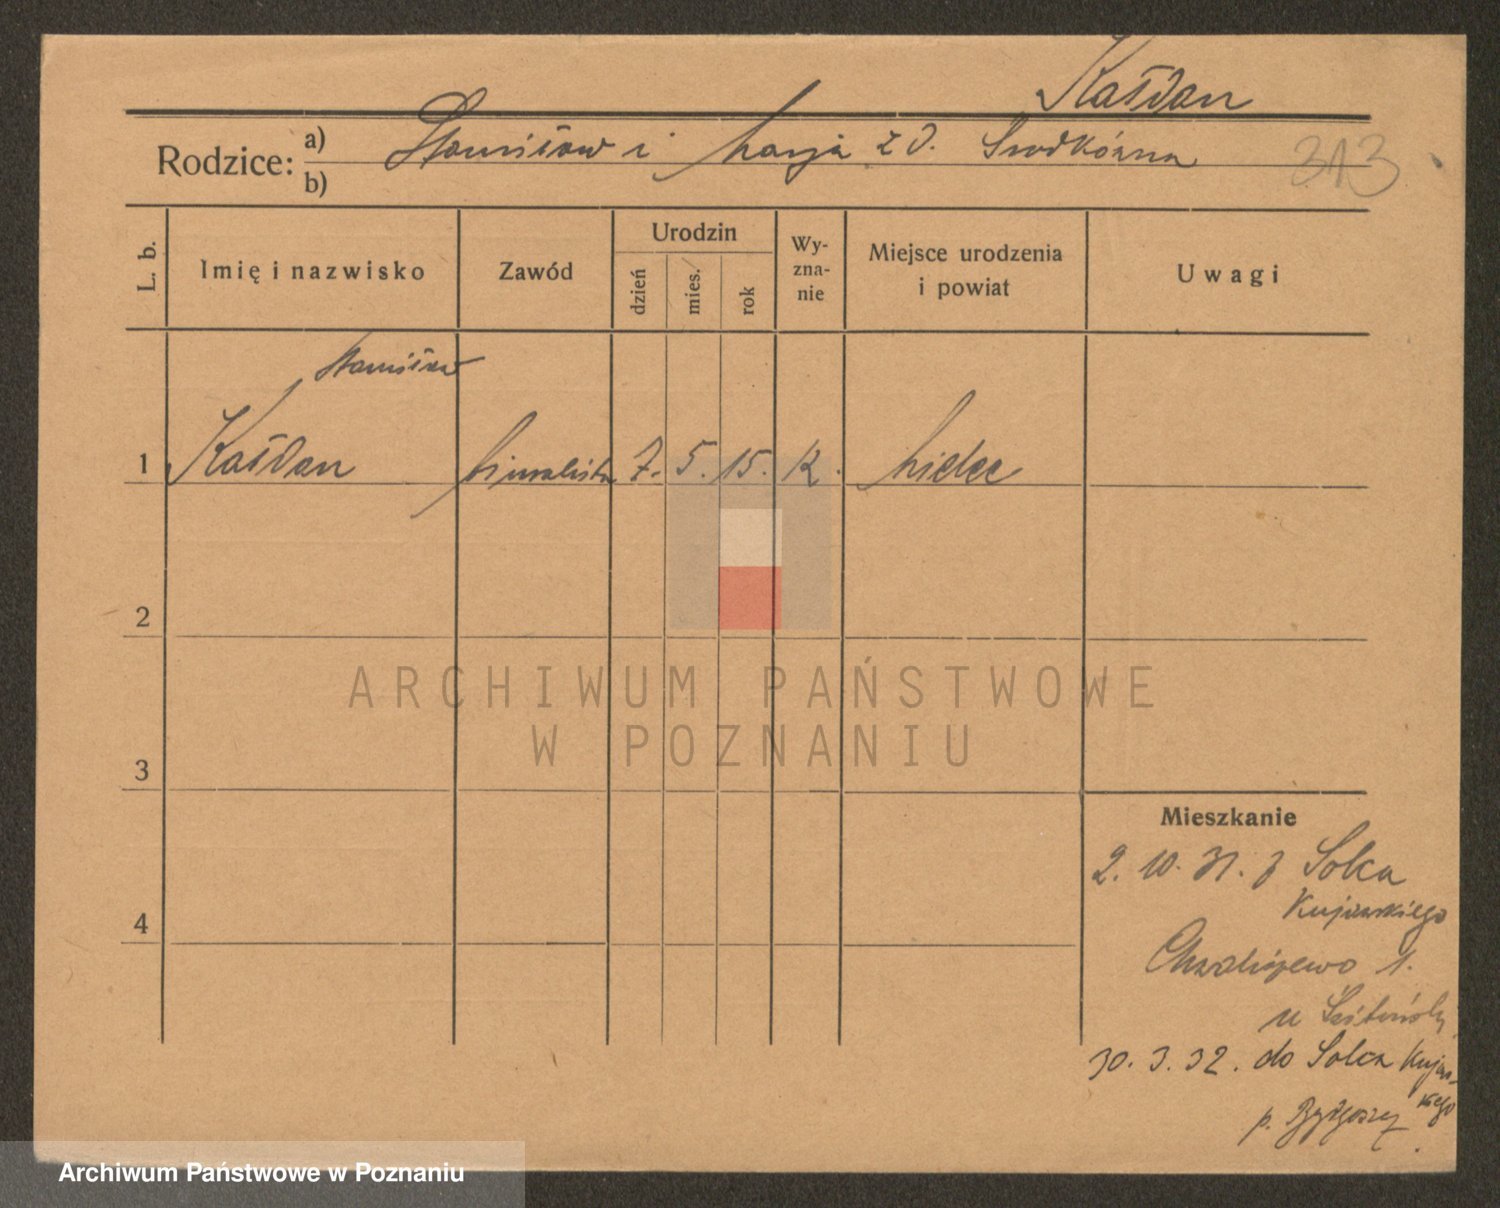 Kałdan
Rodzice: a) Stanisław i Marja z d.
b)
313
L. b.
Imię i nazwisko
Zawód
Urodzin
dzień
mies.
rok
Wy-
zna-
nie
Miejsce urodzenia
i powiat
Uwagi
Stanisław
1 Kałdan biuralista 7. 5. 15. k. Mielec
2
3
4
ARCHIWUM PAŃSTWOWE
W POZNANIU
Mieszkanie
2. 10. 31. z Solca
Kujawskiego
1.
u
30. 3. 32. do Solca Kujaw-
skiego
p. Bydgoszcz
Archiwum Państwowe w Poznaniu